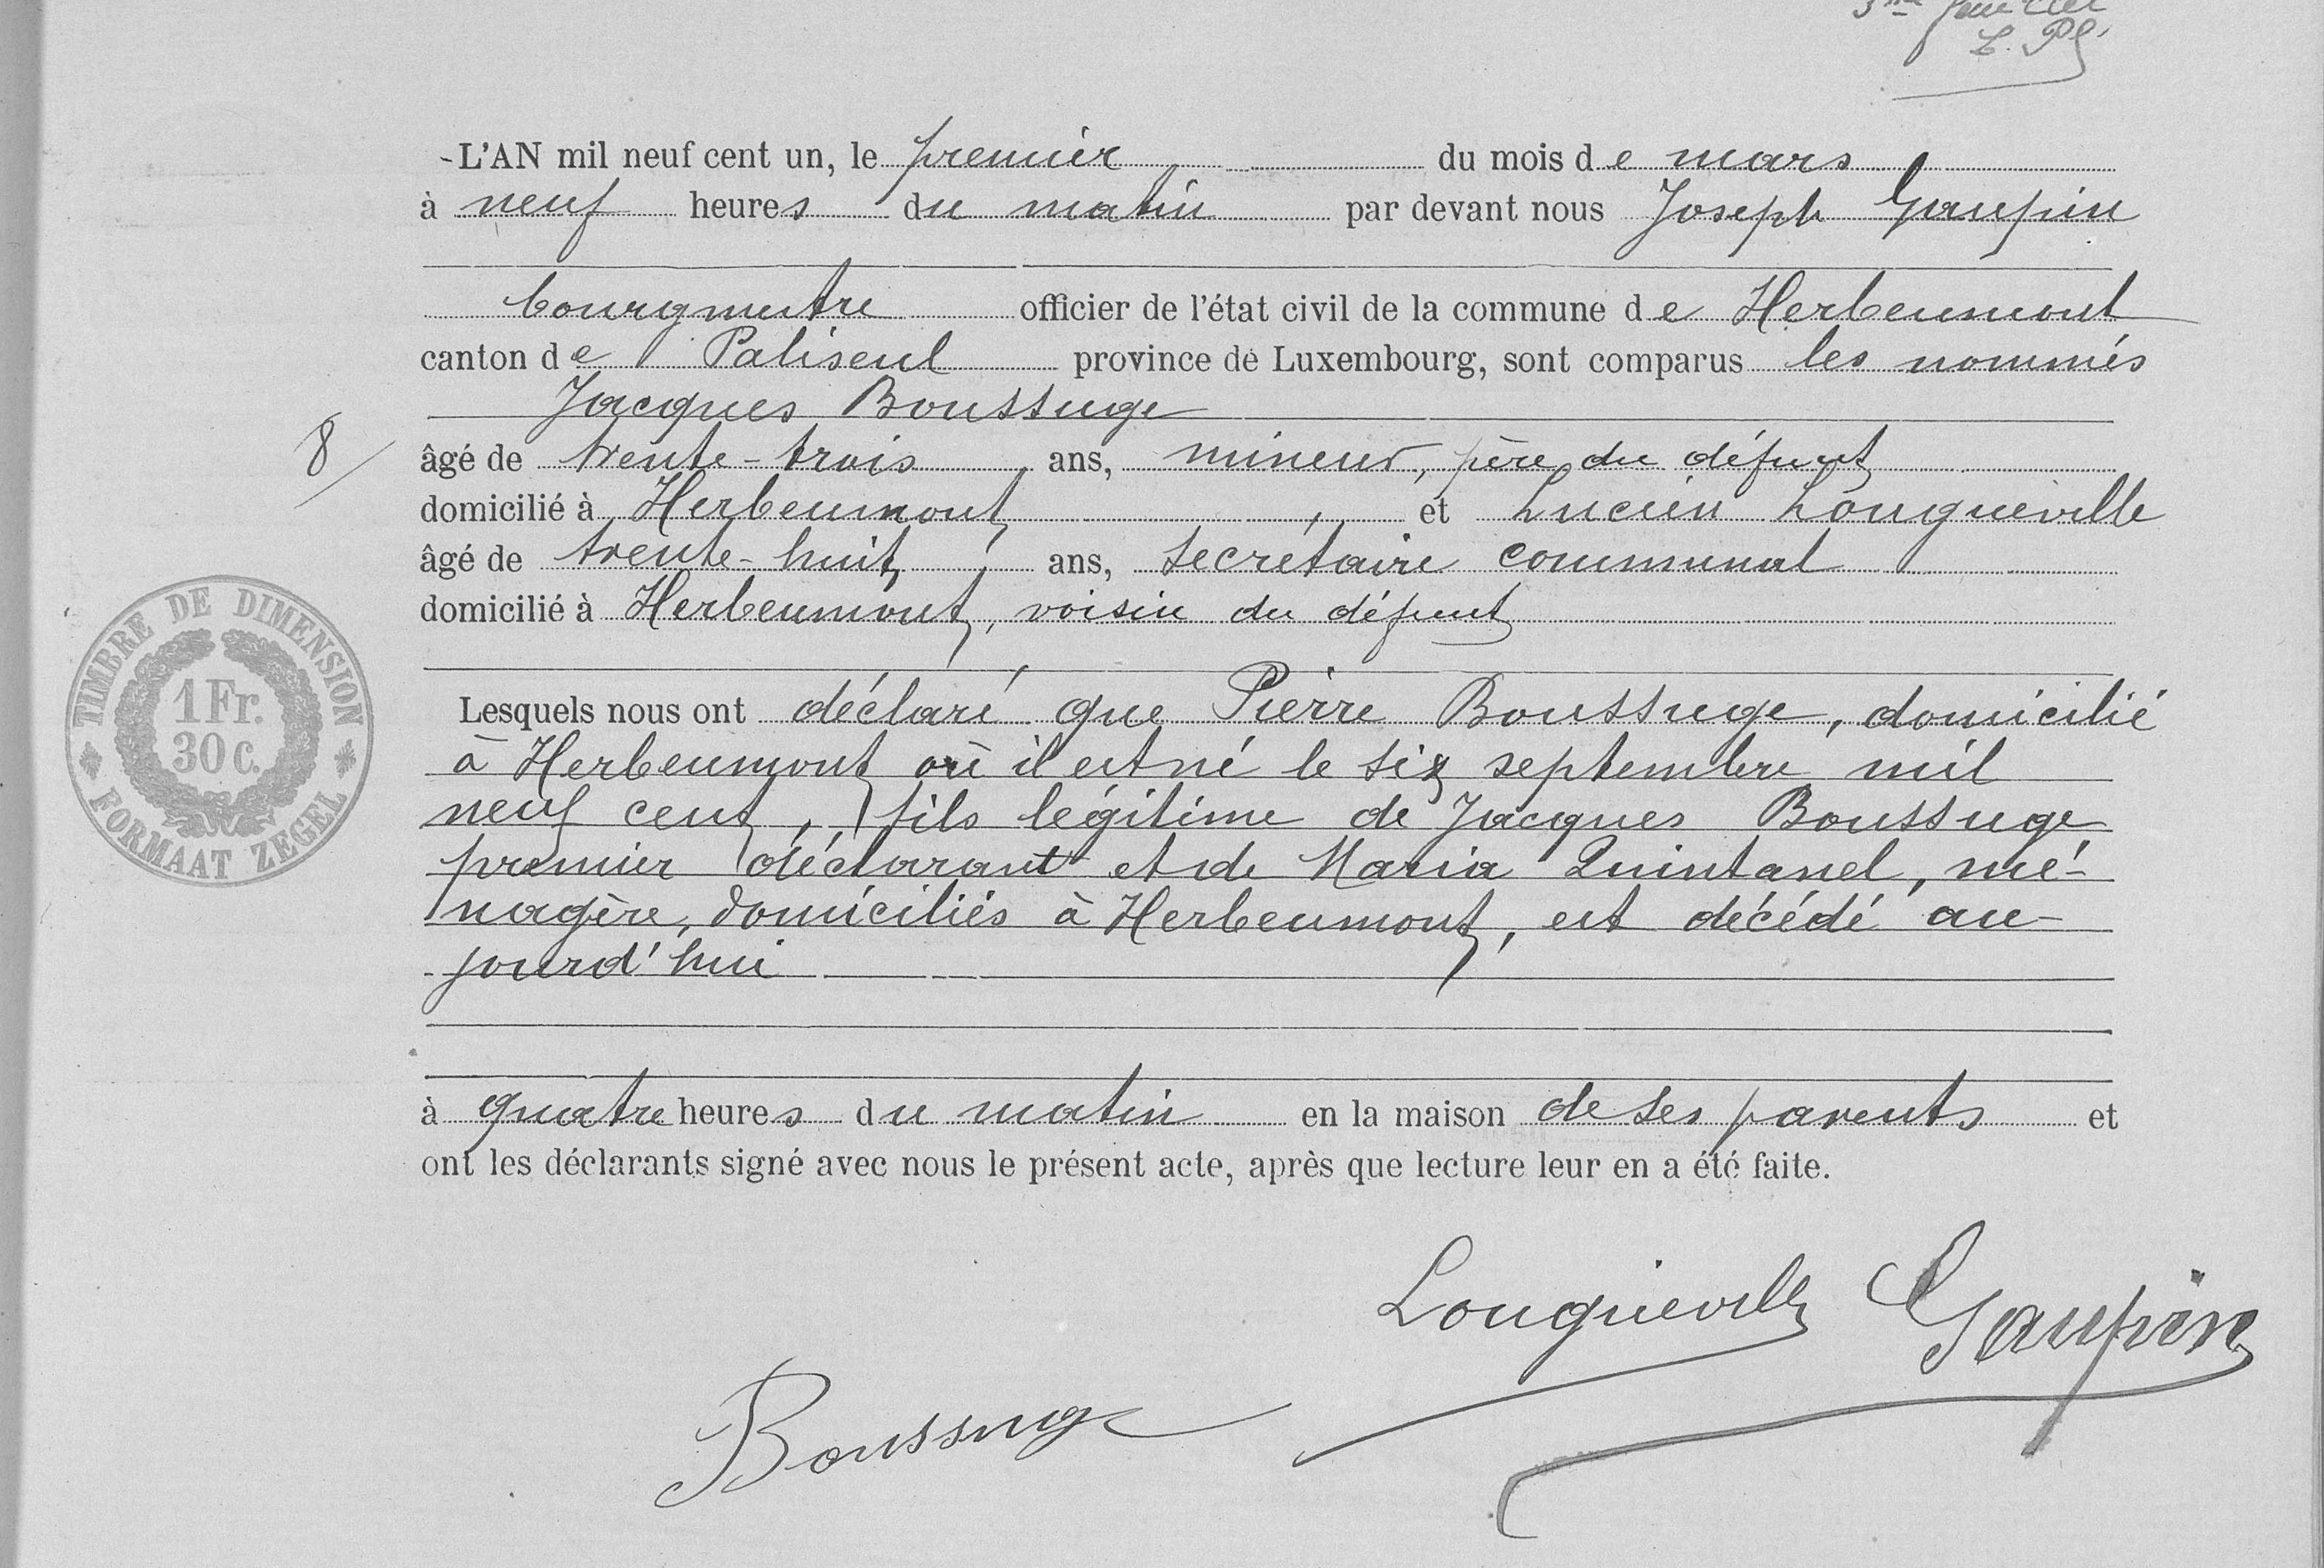 3me feuillet
L. Pl.
-L'AN mil neuf cent un, le premier du mois de mars
à neuf heures du matin par devant nous Joseph Gaupin
bourgmestre officier de l'état civil de la commune de Herbeumont
canton de Paliseul province de Luxembourg, sont comparus les nommés
Jacques Boussuge
8
âgé de trente-trois ans, mineur, père du défunt
domicilié à Herbeumont, et Lucien Longueville
âgé de trente-huit ans, secrétaire communal
domicilié à Herbeumont, voisin du défunt
TIMBRE DE DIMENSION
1 Fr.
30 c.
FORMAAT ZEGEL
Lesquels nous ont déclaré que Pierre Boussuge, domicilié
à Herbeumont où il est né le six septembre mil
neuf cent, fils légitime de Jacques Boussuge
premier déclarant et de Maria Quintanel, mé-
nagère, domiciliés à Herbeumont, est décédé au-
jourd'hui
à quatre heures du matin en la maison de ses parents et
ont les déclarants signé avec nous le présent acte, après que lecture leur en a été faite.
Longueville Gaupin
Boussuge